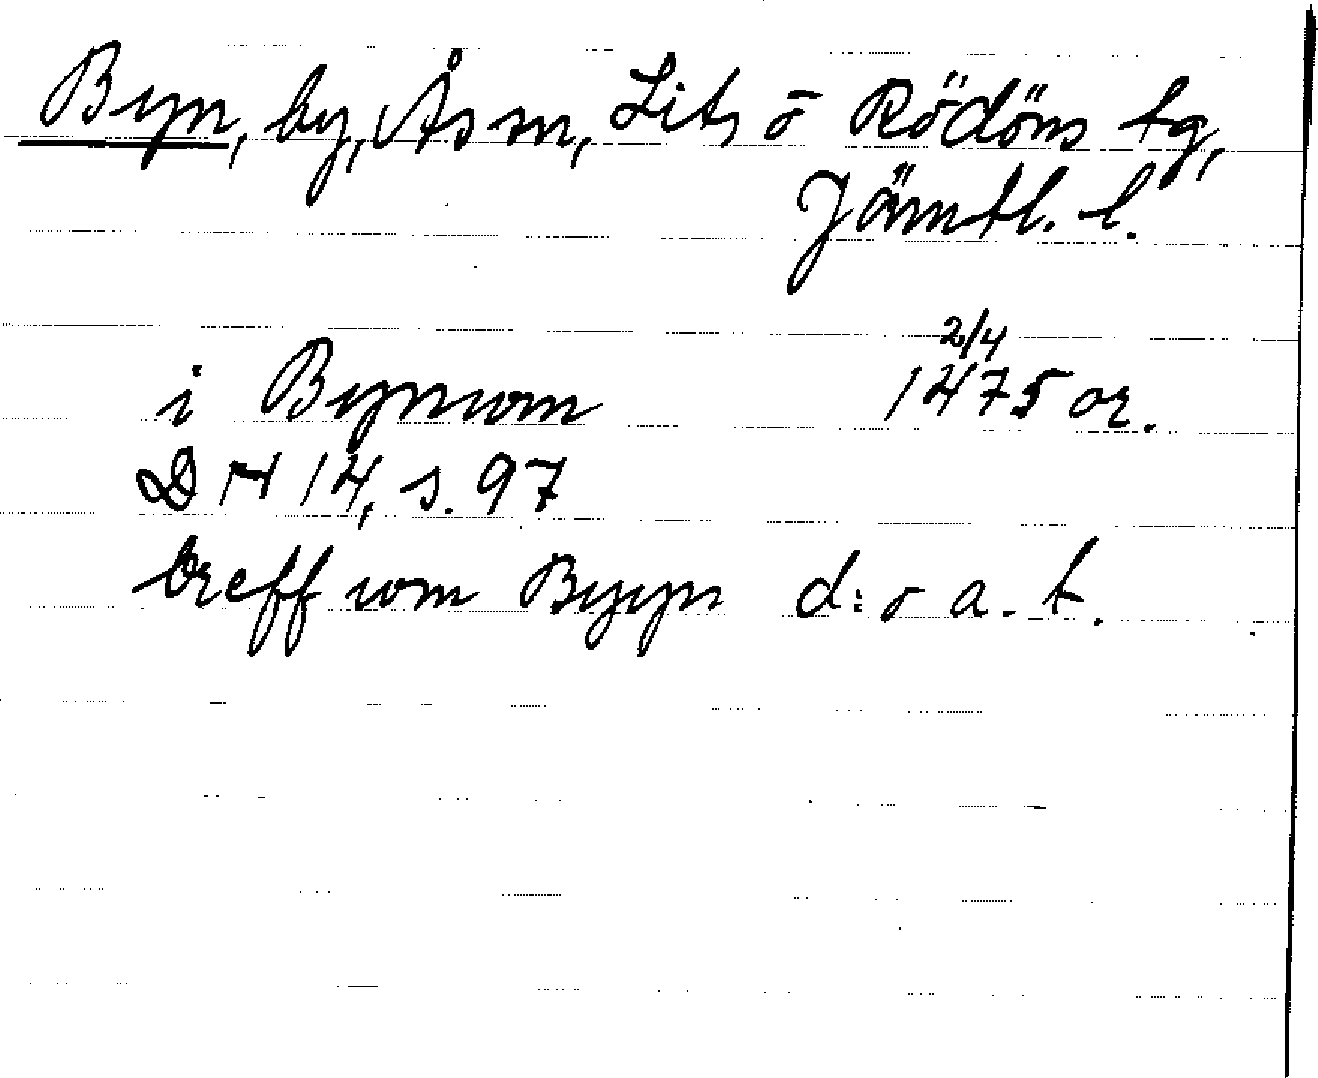 Byn, by, Ås sn, Lits o Rödöns tg,
Jämtl. l.
2/4
i Bynom 1475 or.
DN 14, s. 97
treff wom Byyn d:o a. t.